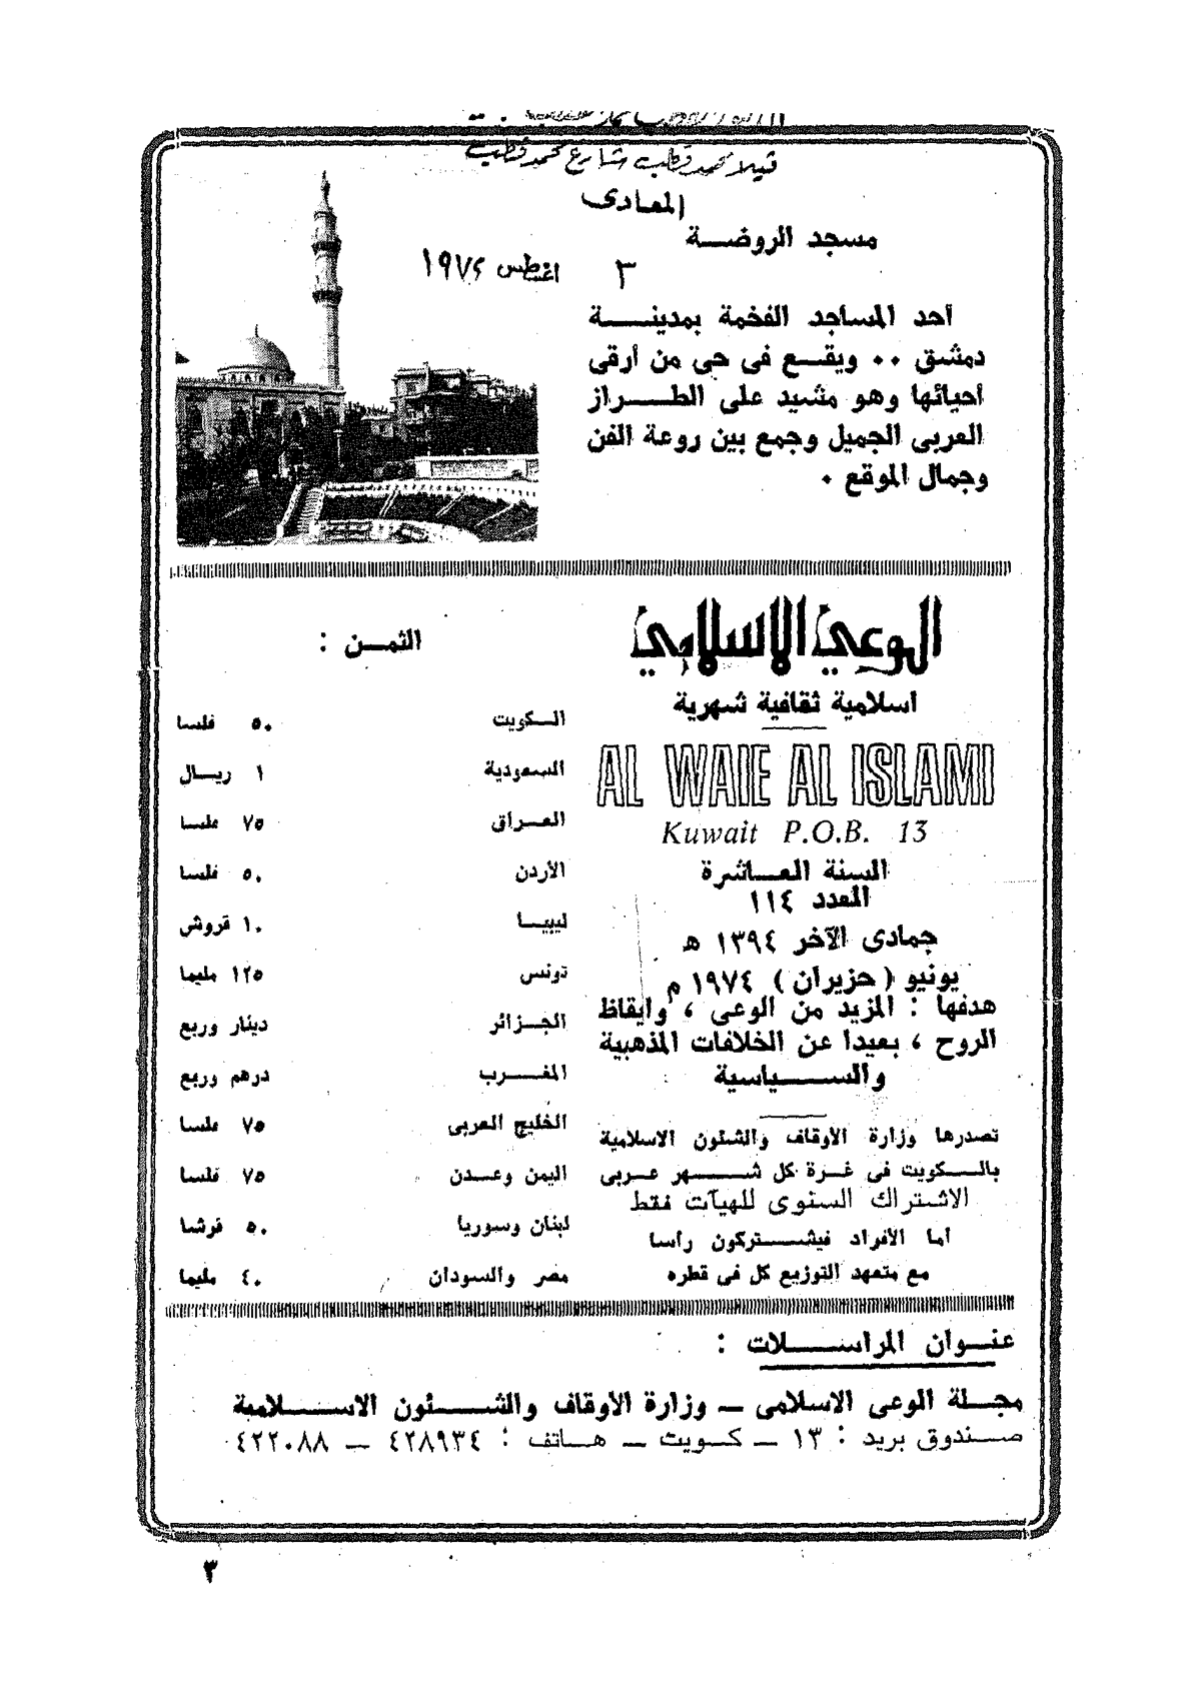 ڤيلا محمد قطب شارع محمد قطب
المعادى
مسجد الروضــة
٣ اغسطس ١٩٧٤
أحد المساجد الفخمة بمدينــــة
دمشق ٠٠ ويقـــع فى حى من أرقى
أحيائها وهو مشيد على الطــــراز
العربى الجميل وجمع بين روعة الفن
وجمال الموقع ٠
الوعي الاسلامي
اسلامية ثقافية شهرية
AL WAIE AL ISLAMI
Kuwait P.O.B. 13
السنة العــاشرة
العدد ١١٤
جمادى الآخر ١٣٩٤ هـ
يونيو ( حزيران ) ١٩٧٤ م
هدفها : المزيد من الوعى ، وايقاظ
الروح ، بعيدا عن الخلافات المذهبية
والســــياسية
تصدرها وزارة الأوقاف والشئون الاسلامية
بالــكويت فى غــرة كل شـــــهر عــربى
الاشتراك السنوى للهيآت فقط
أما الأفراد فيشـــتركون رأسا
مع متعهد التوزيع كل فى قطره
الثمــن :
الــكويت ٥٠ فلسا
السعودية ١ ريــال
العــراق ٧٥ فلسا
الأردن ٥٠ فلسا
ليبيــا ١٠ قروش
تونس ١٢٥ مليما
الجــزائر دينار وربع
المغــــرب درهم وربع
الخليج العربى ٧٥ فلسا
اليمن وعــدن ٧٥ فلسا
لبنان وسوريا ٥٠ قرشا
مصر والسودان ٤٠ مليما
عنــوان المراســـــلات :
مجــلة الوعى الاسلامى ــ وزارة الأوقاف والشــــئون الاســـــلامية
صــندوق بريد : ١٣ ــ كــويت ــ هــاتف : ٤٢٨٩٣٤ ــ ٤٢٢٠٨٨
٣